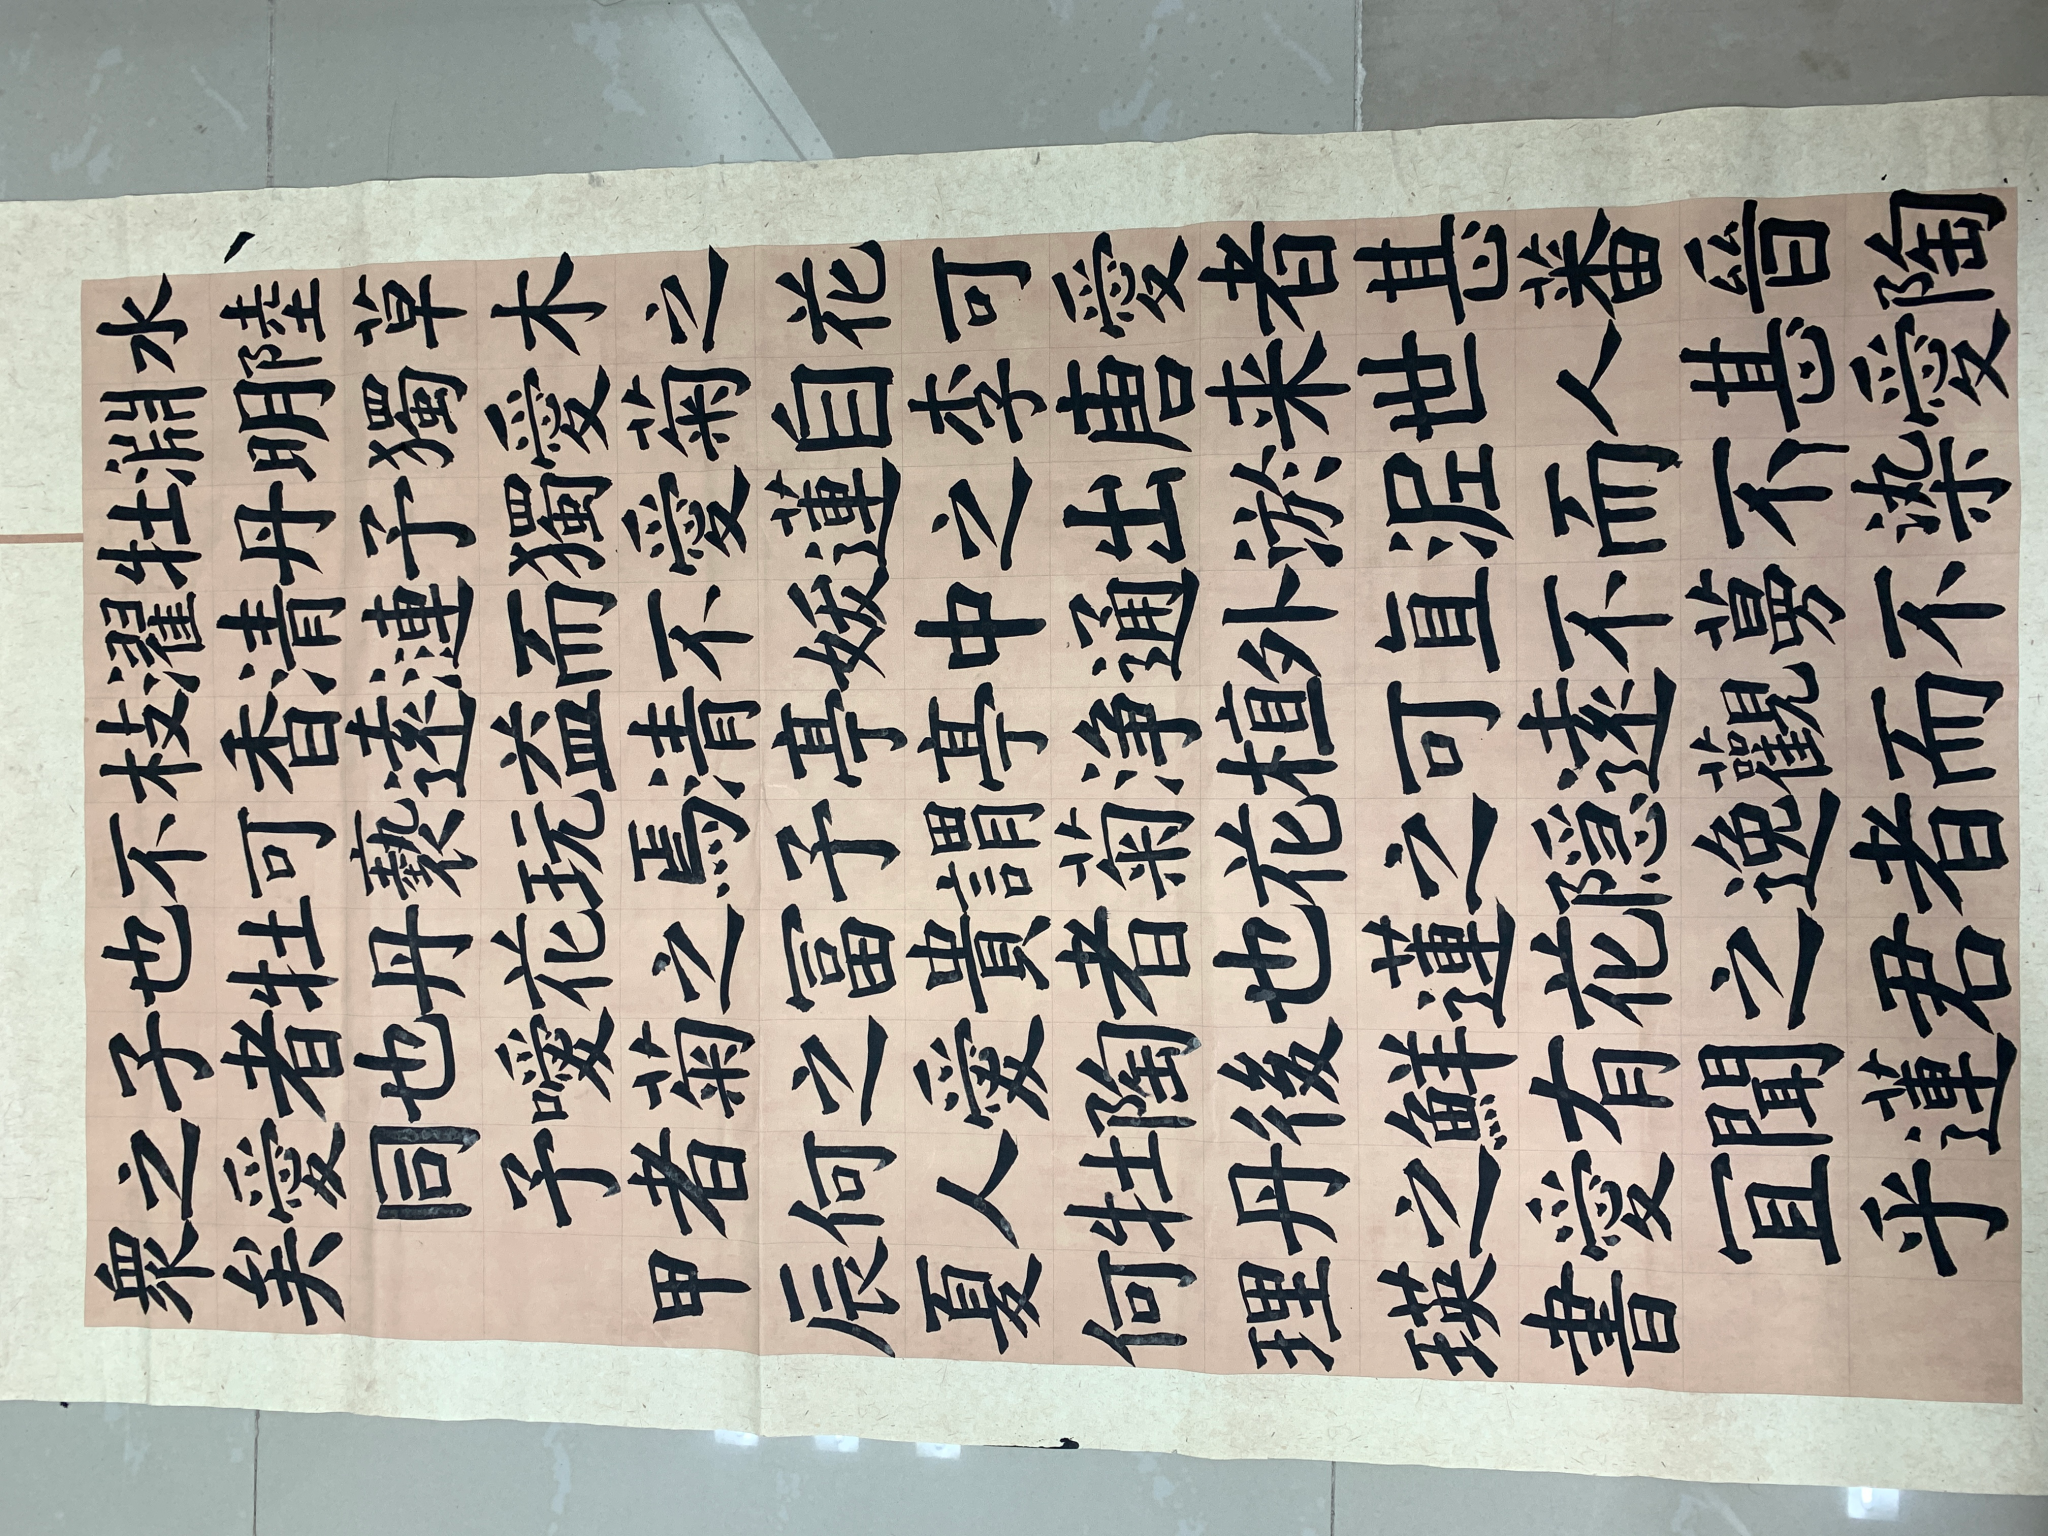 水陸草木之花可愛者甚蕃晉陶
淵明獨愛菊自李唐来世人甚愛
牡丹予獨愛蓮之出淤泥而不染
濯清漣而不妖中通外直不蔓不
枝香遠益清亭亭淨植可遠觀而
不可褻玩焉予謂菊花之隱逸者
也牡丹花之富貴者也蓮花之君
子者也噫菊之愛陶後鮮有聞蓮
之愛同予者何人牡丹之愛宜乎
衆矣 甲辰夏何理瑛書